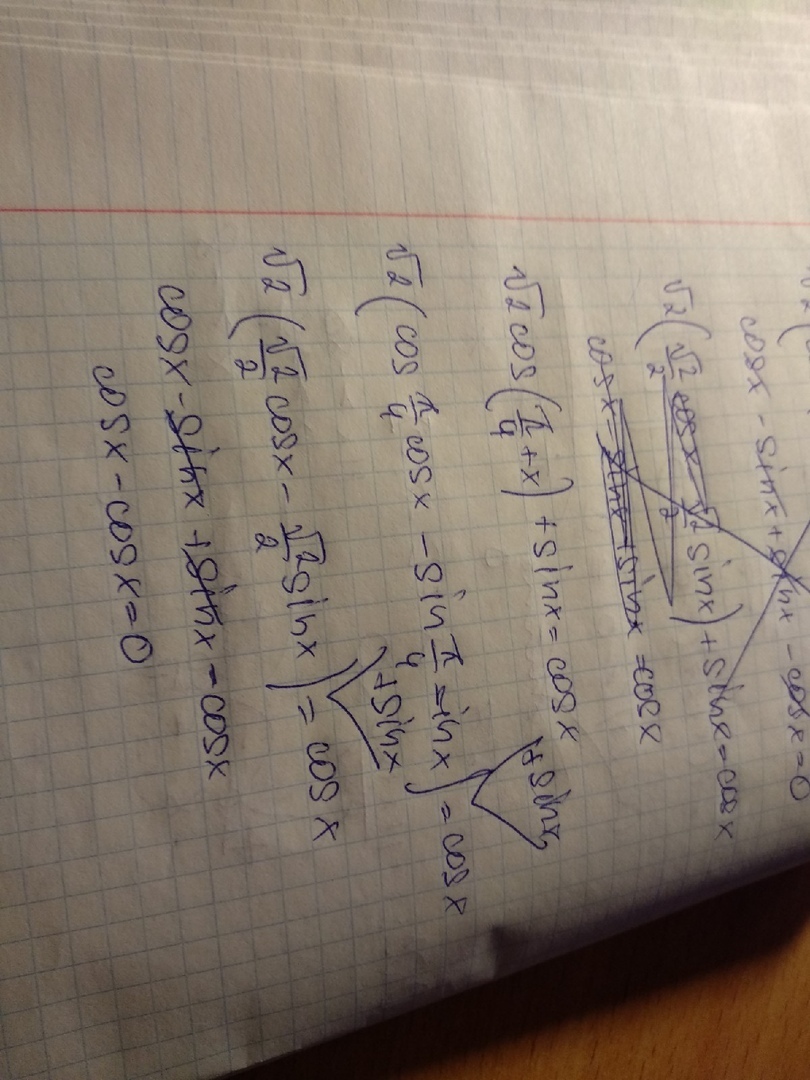 √2(
cosx - sinx + sinx - cosx = 0
√2(√2/2 cosx - √2/2 sinx) + sinx = cosx
cosx - sinx + sinx = cosx
√2 cos(π/4 + x) + sinx = cosx
√2(cos π/4 cosx - sin π/4 sinx) + sinx = cosx
√2(√2/2 cosx - √2/2 sinx) + sinx = cosx
cosx - sinx + sinx = cosx
cosx - cosx = 0